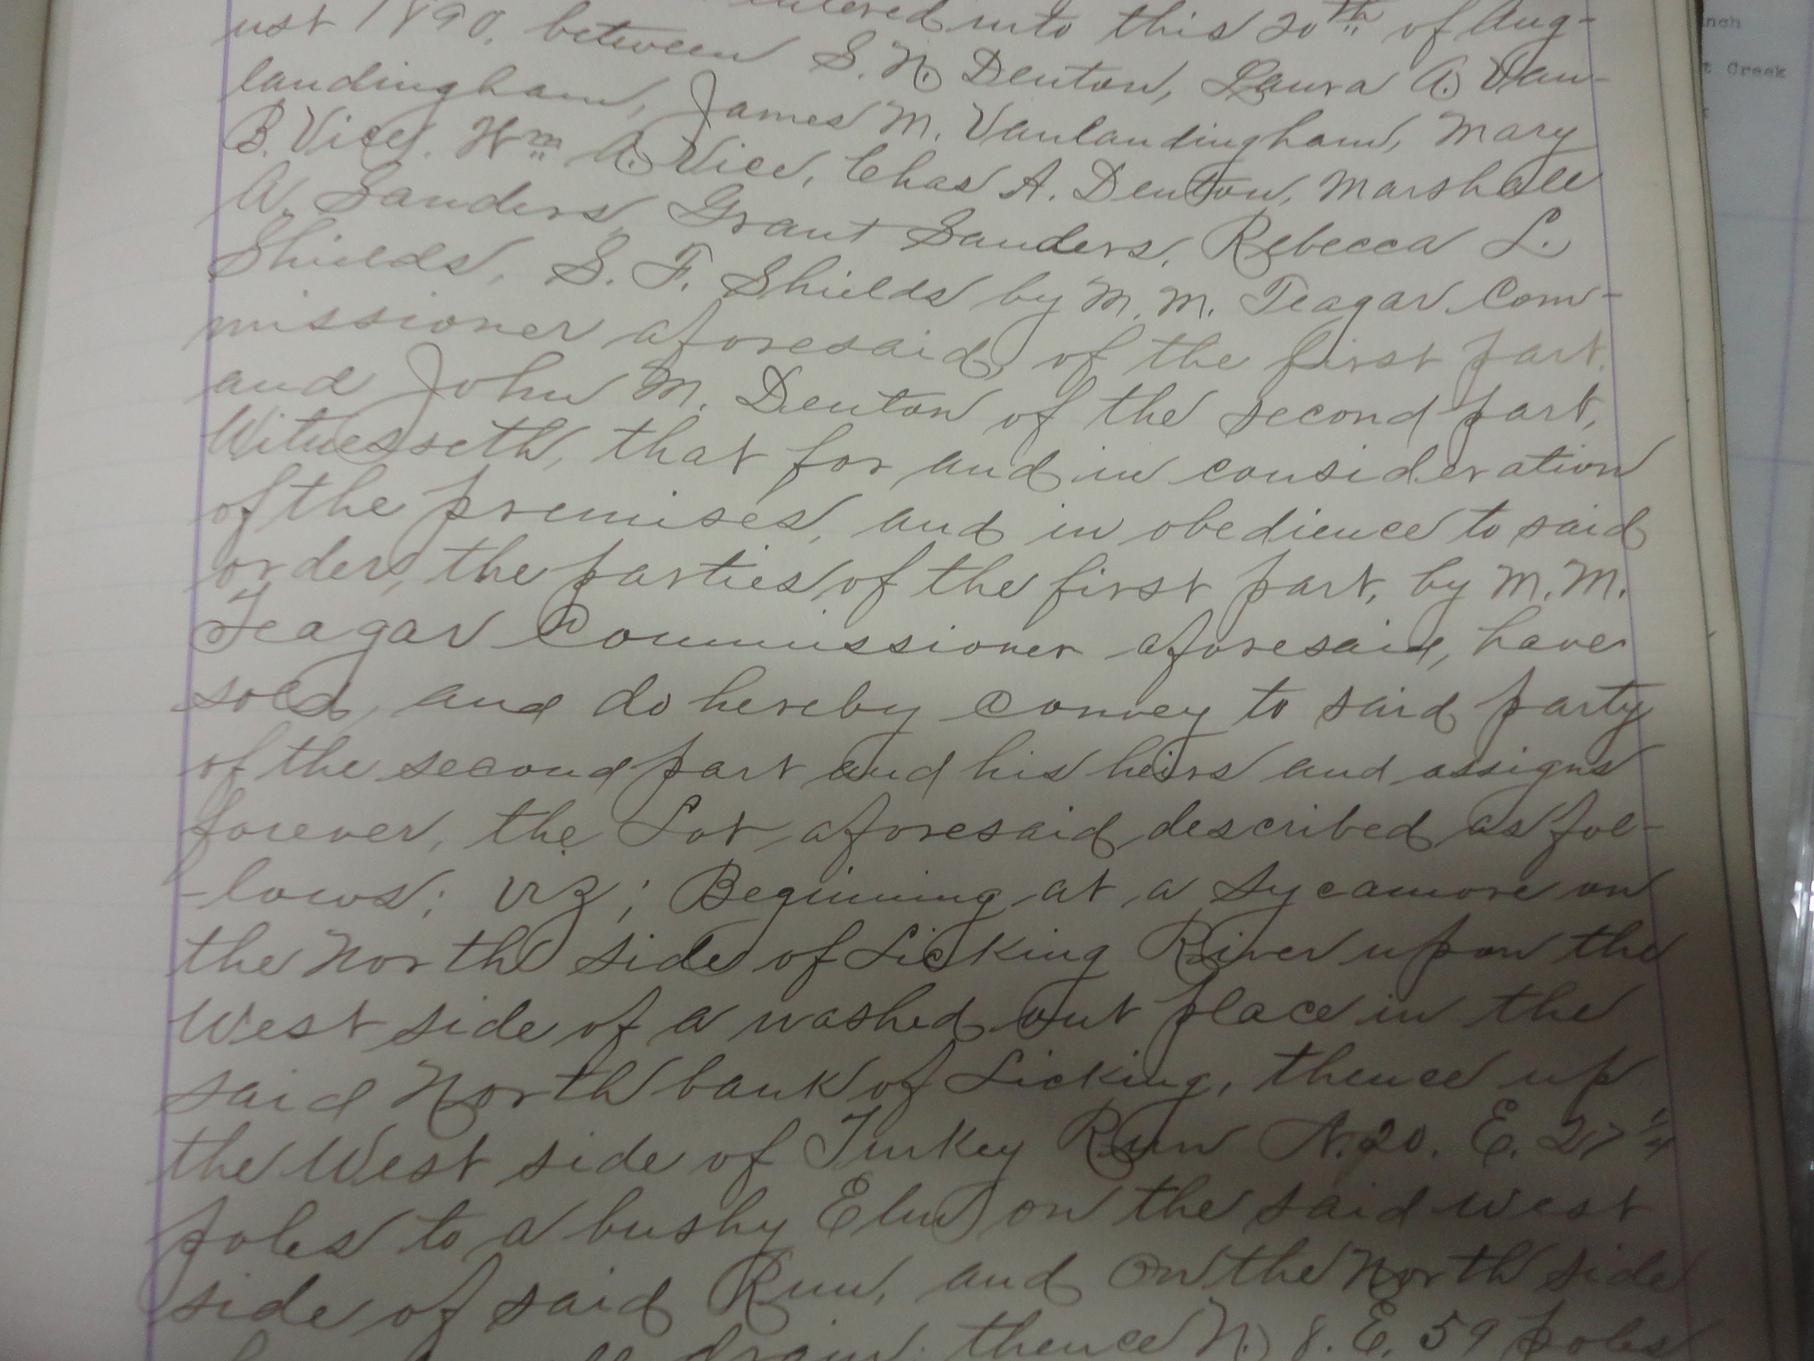 entered into this 20th of Aug-
ust 1890, between S. N. Denton, Laura A. Van-
landingham, James M. Vanlandingham, Mary
B. Vice, Wm A. Vice, Chas A. Denton, Marshall
A. Sanders, Grant Sanders, Rebecca L.
Shields, S. F. Shields by M. M. Teagar Com-
missioner aforesaid, of the first part.
and John M. Denton of the second part,
Witnesseth, that for and in consideration
of the premises, and in obedience to said
orders, the parties of the first part, by M. M.
Teagar Commissioner aforesaid, have
sold, and do hereby convey to said party
of the second part and his heirs and assigns
forever, the Lot aforesaid described as fol-
-lows; viz; Beginning at a Sycamore on
the North side of Licking River upon the
West side of a washed out place in the
said North bank of Licking, thence up
the West side of Turkey Run N. 20. E. 27 1/4
poles to a bushy Elm on the said west
side of said Run, and on the North side
drain. thence N. 8. E. 59 poles
nch
Creek